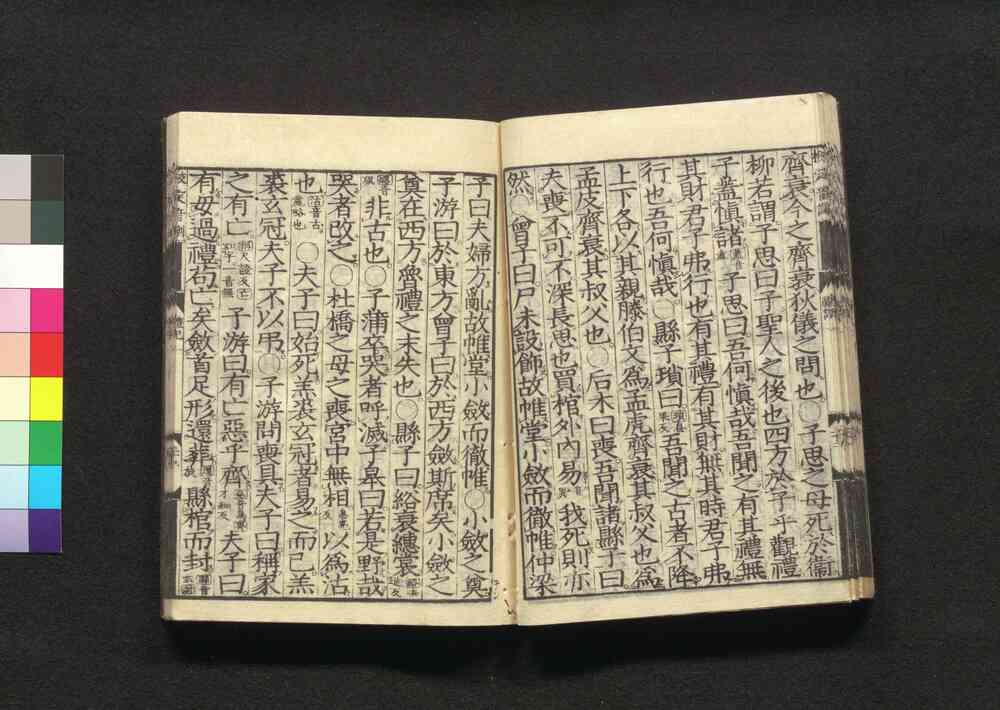 齊衰今之齊衰狄儀之問也○子思之母死於衞
柳若謂子思曰子聖人之後也四方於子乎觀禮
子蓋愼諸子思曰吾何愼哉吾聞之有其禮無
其財君子弗行也有其禮有其財無其時君子弗
行也吾何愼哉○縣子瑣曰吾聞之古者不降
上下各以其親滕伯文爲孟虎齊衰其叔父也爲
孟皮齊衰其叔父也○后木曰喪吾聞諸縣子曰
夫喪不可不深長思也買棺外內易我死則亦
然○曾子曰尸未設飾故帷堂小斂而徹帷仲梁
子曰夫婦方亂故帷堂小斂而徹帷○小斂之奠
子游曰於東方曾子曰於西方斂斯席矣小斂之
奠在西方魯禮之末失也○縣子曰綌衰繐裳
非古也○子蒲卒哭者呼滅子皐曰若是野哉
哭者改之○杜橋之母之喪宮中無相以爲沽
也沽音古略也○夫子曰始死羔裘玄冠者易之而已羔
裘玄冠夫子不以弔○子游問喪具夫子曰稱家
之有亡子游曰有亡惡乎齊夫子曰
有毋過禮苟亡矣斂首足形還葬縣棺而封